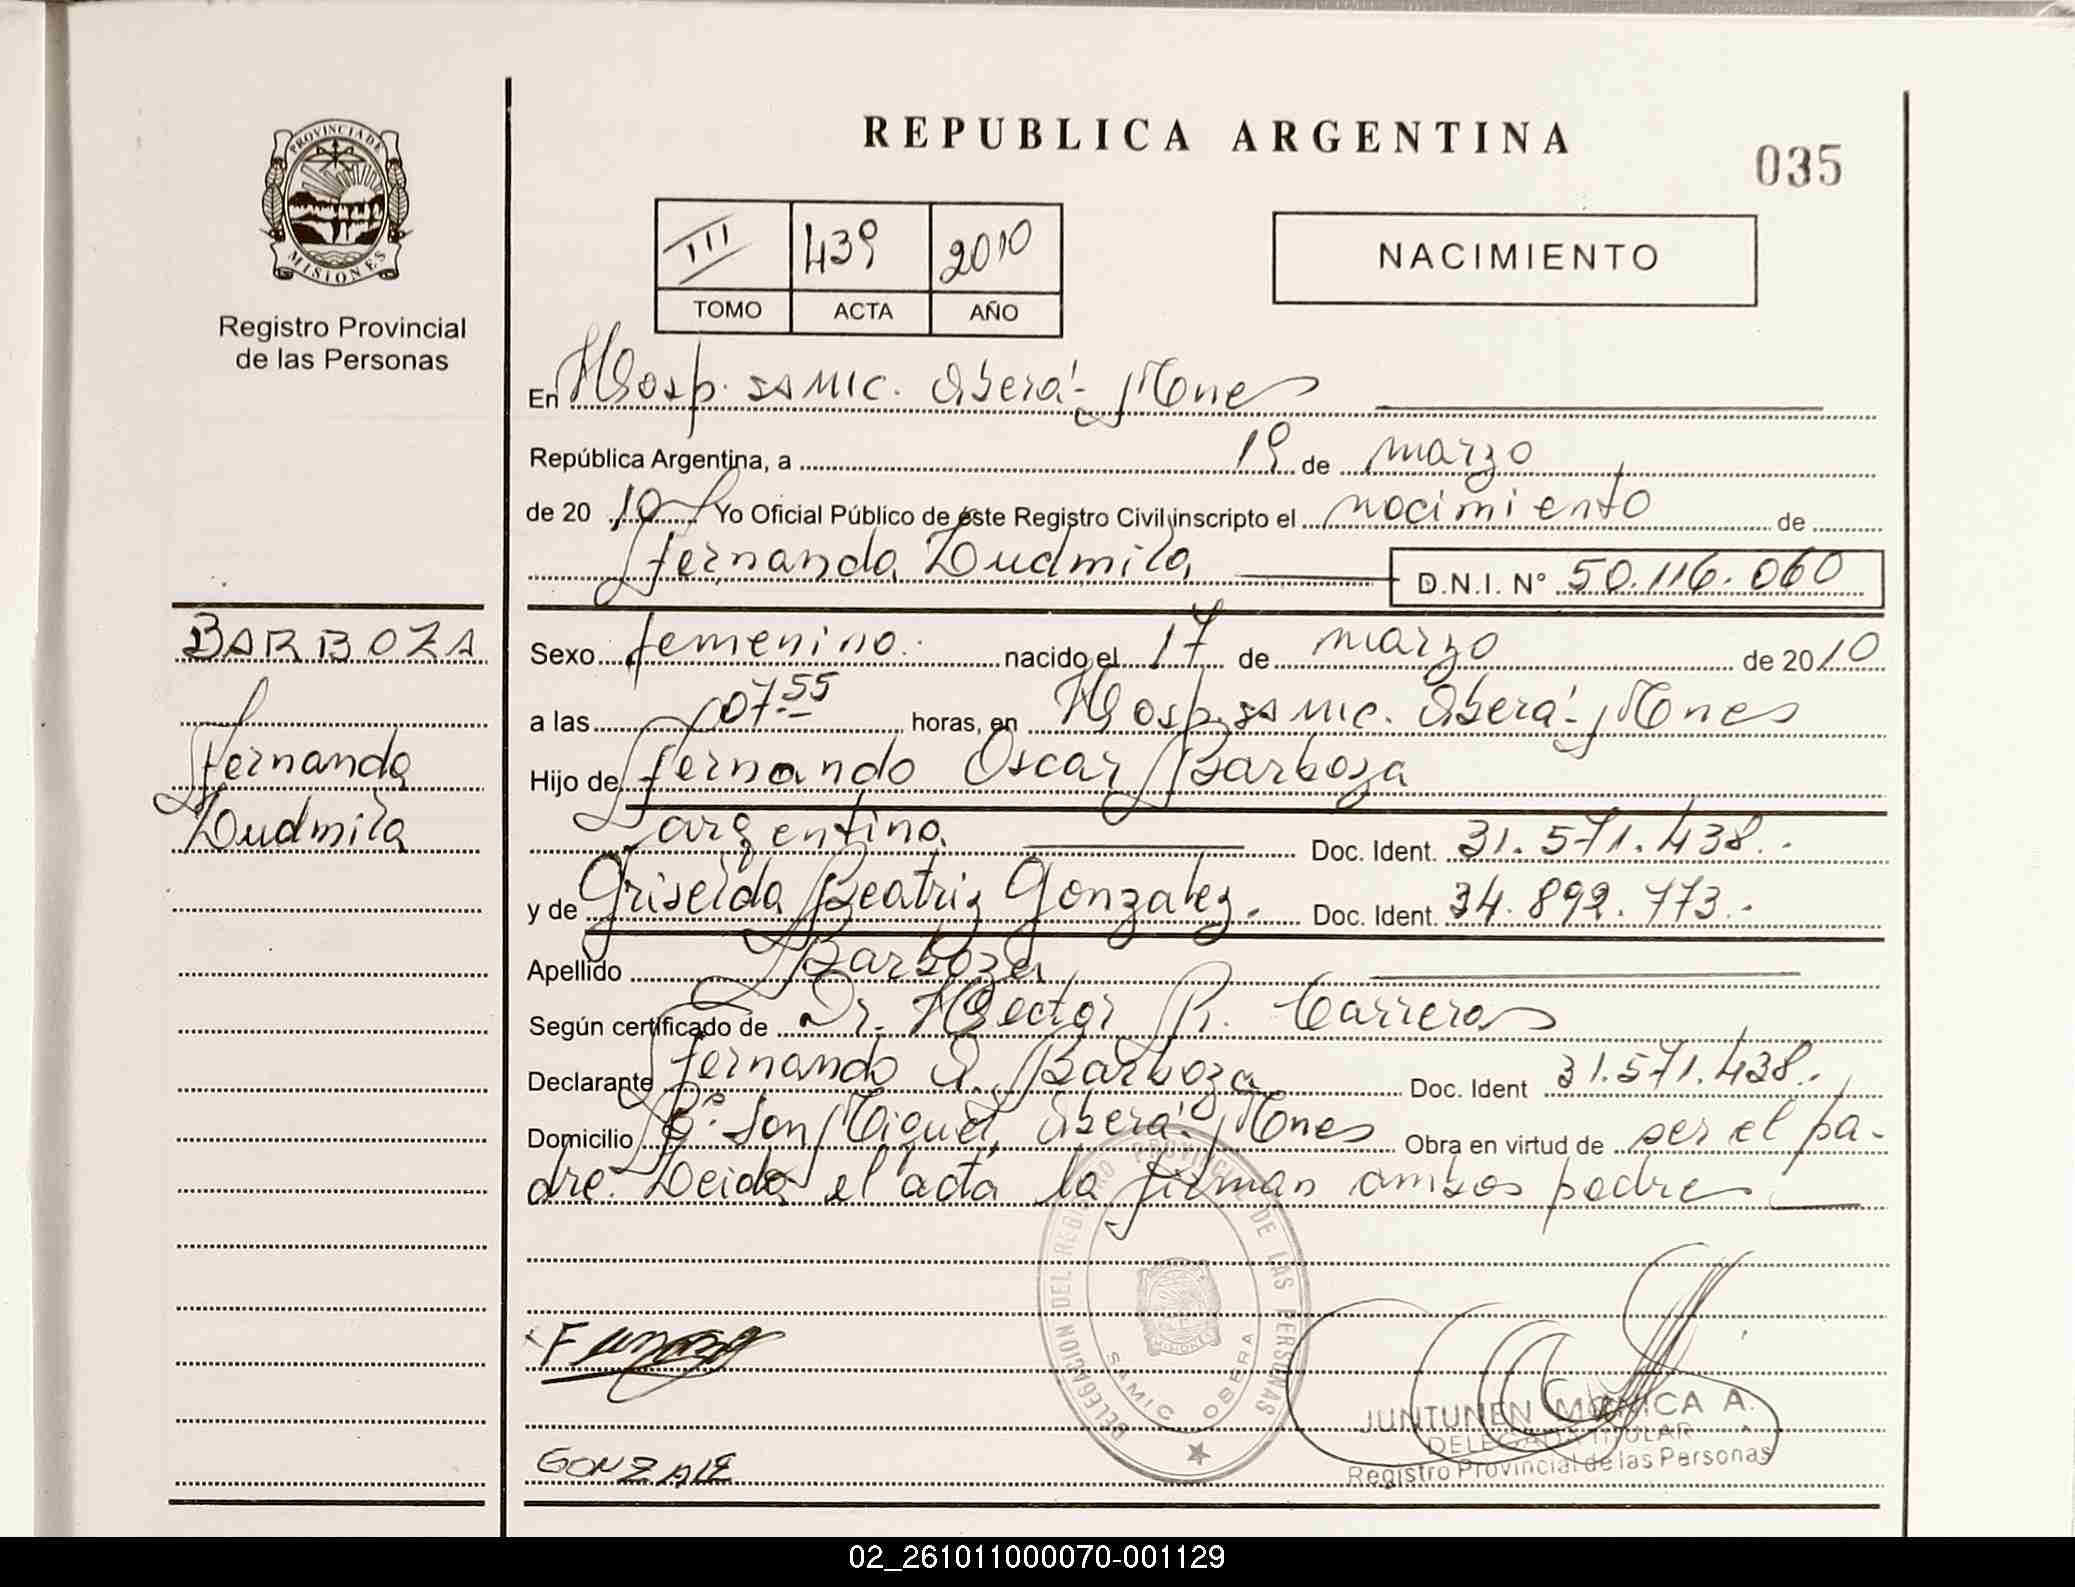 REPUBLICA ARGENTINA
035
PROVINCIA DE
MISIONES
Registro Provincial
de las Personas
III 439 2010
TOMO ACTA AÑO
NACIMIENTO
En Hosp. SAMIC. Oberá - Mnes
República Argentina, a 19 de marzo
de 20 10 Yo Oficial Público de éste Registro Civil inscripto el nacimiento de
Fernanda Ludmila D.N.I. Nº 50.116.060
BARBOZA
Fernanda
Ludmila
Sexo femenino. nacido el 17 de marzo de 2010
a las 07.55 horas, en Hosp. SAMIC. Oberá - Mnes
Hijo de Fernando Oscar Barboza
argentino Doc. Ident. 31.571.438.-
y de Griselda Beatriz Gonzalez. Doc. Ident. 34.892.773.-
Apellido Barboza
Según certificado de Dr. Hector R. Carreras
Declarante Fernando O. Barboza Doc. Ident 31.571.438.-
Domicilio Bº San Miguel, Oberá - Mnes Obra en virtud de ser el pa-
dre. Leida el acta la firman ambos padres
DELEGACION DEL REGISTRO PROVINCIAL DE LAS PERSONAS
MISIONES
SAMIC OBERA
GONZALE
JUNTUNEN MONICA A.
DELEGADA TITULAR
Registro Provincial de las Personas
02_261011000070-001129